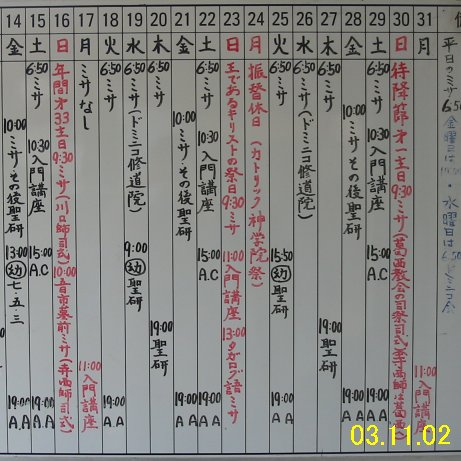 14 15 16 17 18 19 20 21 22 23 24 25 26 27 28 29 30 31
金 土 日 月 火 水 木 金 土 日 月 火 水 木 金 土 日 月
10:00 ミサ・その後聖研 13:00 幼 七・五・三 19:00 AA
6:50 ミサ 10:30 入門講座 15:00 A.C 19:00 AA
年間才33主日 9:30 ミサ(川口師司式) 10:00 五日市墓前ミサ(寺西師司式)
ミサなし 11:00 入門講座
6:50 ミサ 19:00 AA
6:50 ミサ(ドミニコ修道院) 9:00 幼 聖研
6:50 ミサ 19:00 聖研
10:00 ミサ・その後聖研 19:00 AA
6:50 ミサ 10:30 入門講座 15:00 A.C 19:00 AA
王であるキリストの祭日 9:30 ミサ 11:00 入門講座 13:00 タガログ語ミサ
振替休日(カトリック神学院祭)
6:50 ミサ 15:50 幼 聖研 19:00 AA
6:50 ミサ(ドミニコ修道院)
6:50 ミサ 19:00 聖研
10:00 ミサ・その後聖研 19:00 AA
6:50 ミサ 10:30 入門講座 15:00 A.C 19:00 AA
待降節才一主日 9:30 ミサ(葛西教会の司祭司式)寺西師は葛西
11:00 入門講座
平日のミサ 6:50
金曜日は 10:00・水曜日は 6:50 ドミニコ会
03.11.02